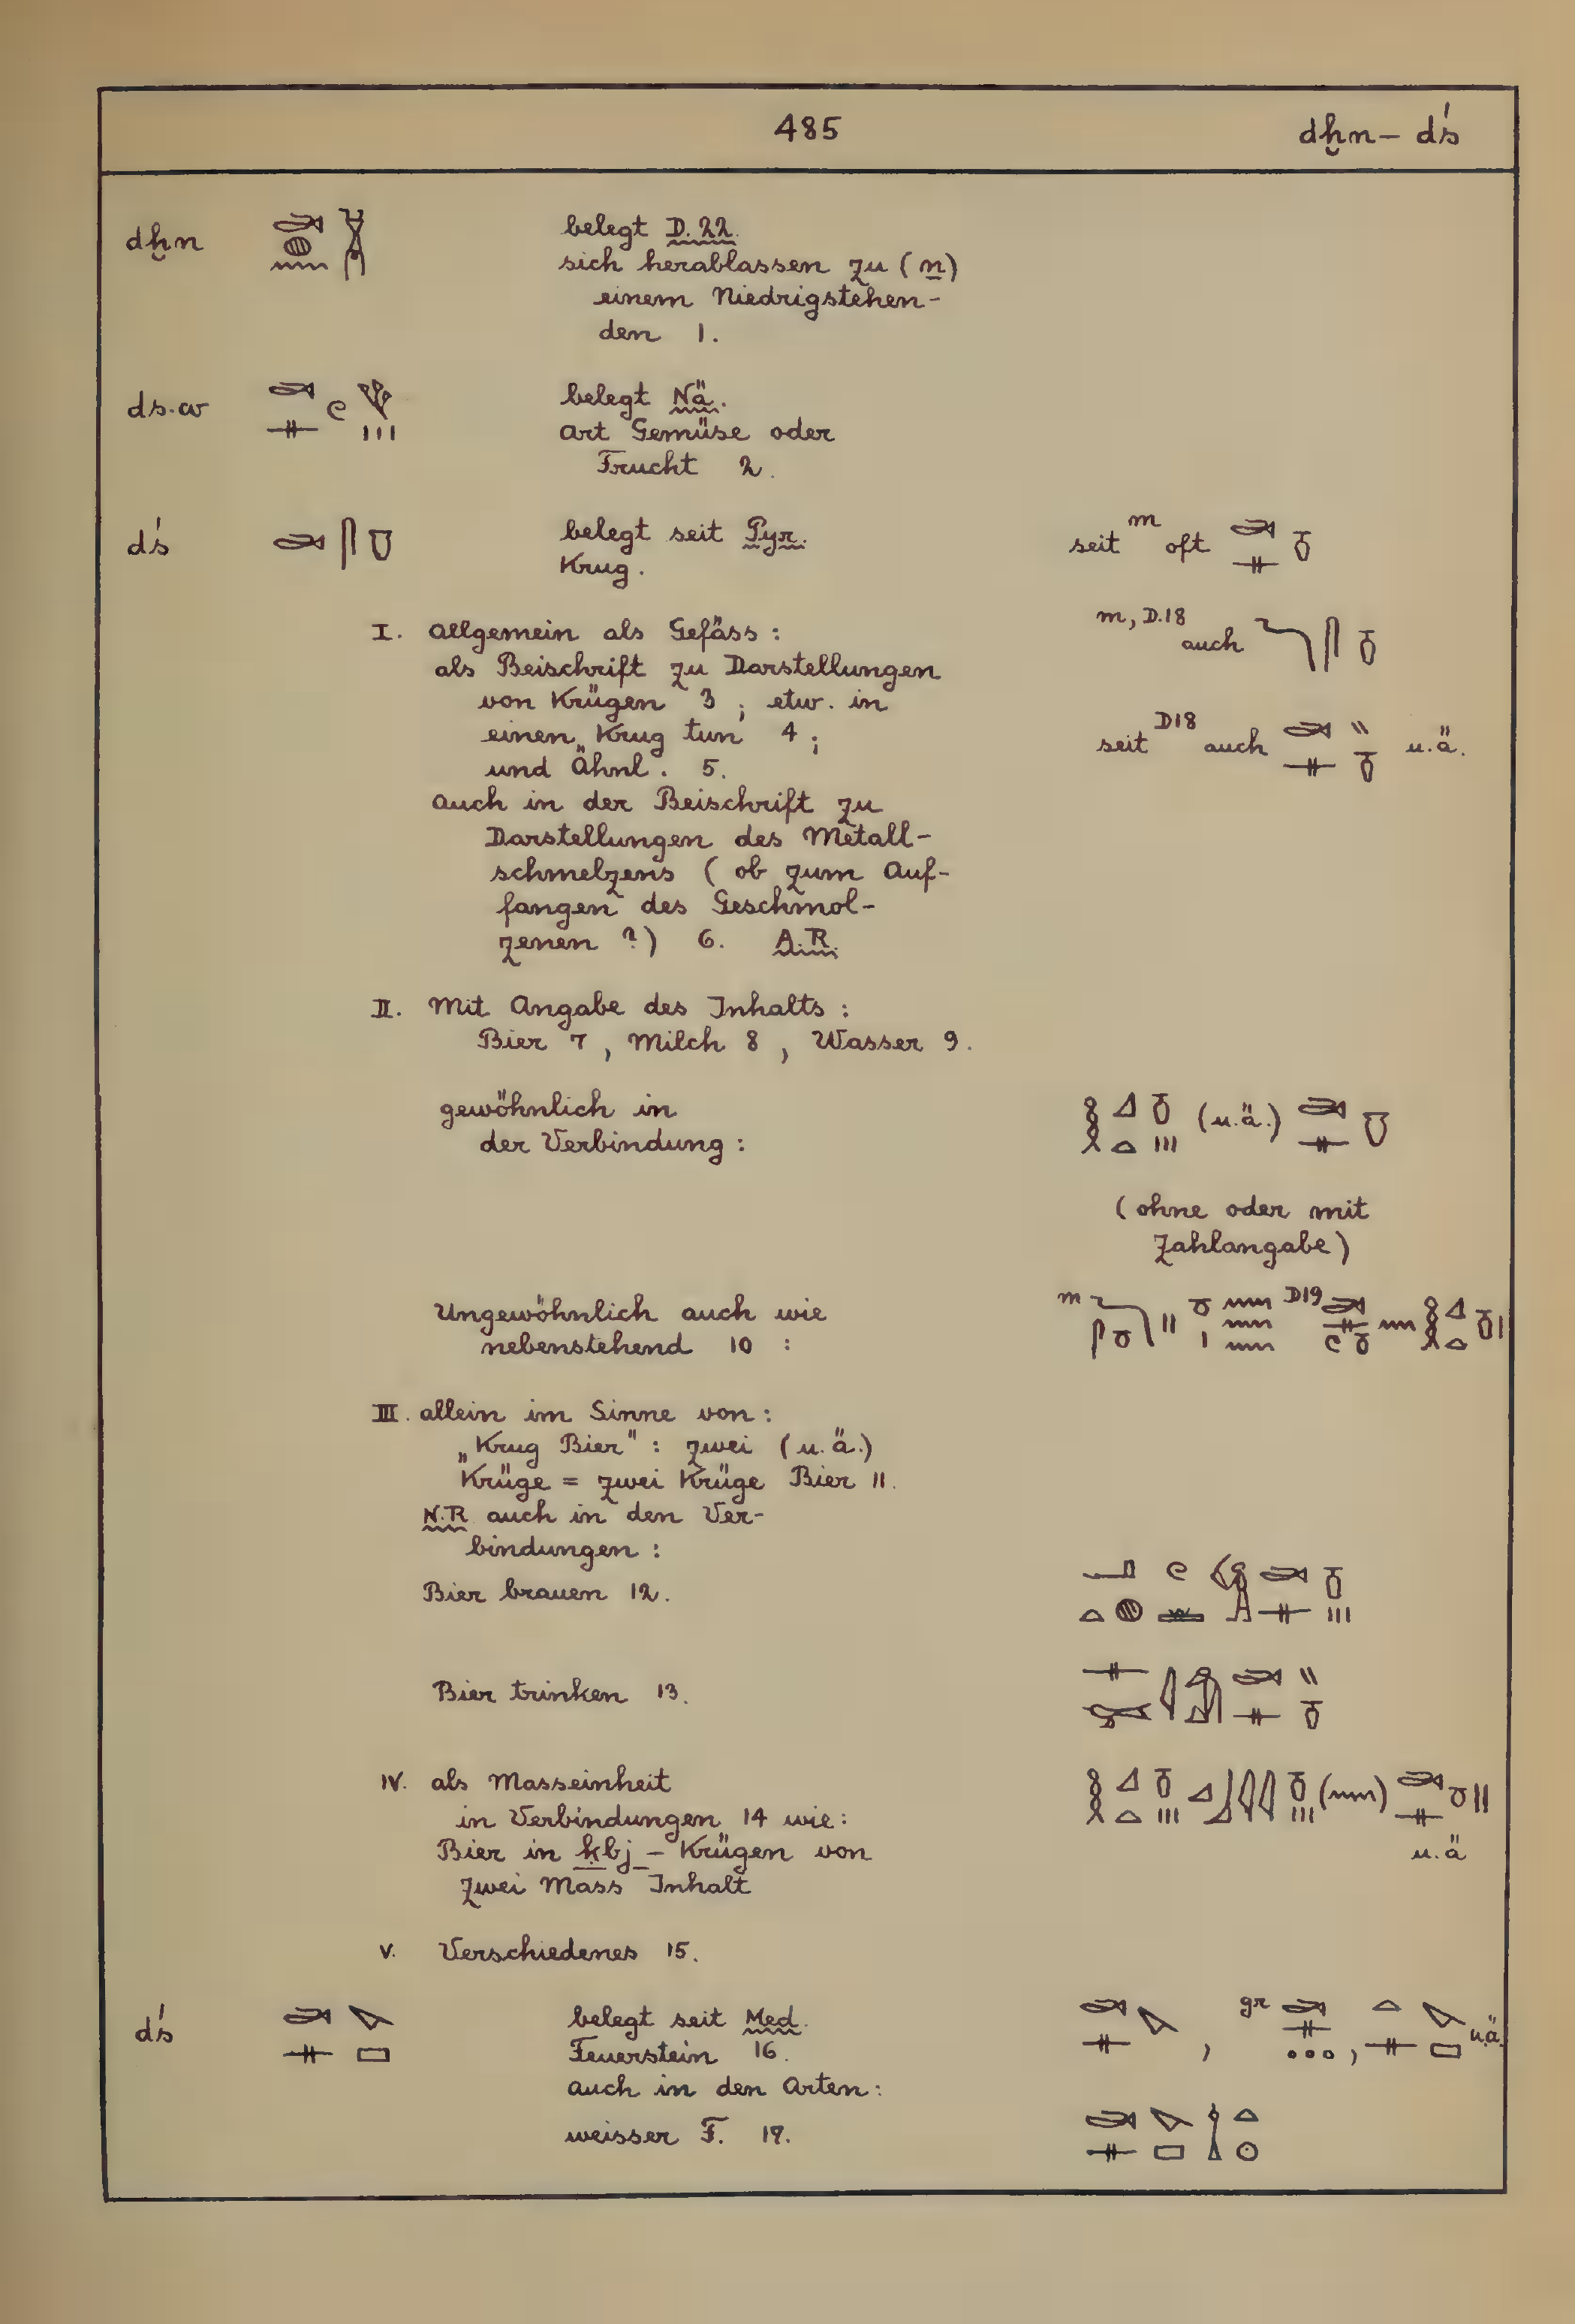 485 dẖn – dś
dẖn belegt D. 22.
sich herablassen zu (n)
einem Niedrigstehen-
den 1.
ds.w belegt Nä.
Art Gemüse oder
Frucht 2.
dś belegt seit Pyr. seit m oft
Krug.
I. Allgemein als Gefäss: m, D.18 auch
als Beischrift zu Darstellungen
von Krügen 3; etw. in
einen Krug tun 4; seit D18 auch u.ä.
und Ähnl. 5.
Auch in der Beischrift zu
Darstellungen des Metall-
schmelzens (ob zum Auf-
fangen des Geschmol-
zenen?) 6. A.R.
II. Mit Angabe des Inhalts:
Bier 7, Milch 8, Wasser 9.
gewöhnlich in (u.ä.)
der Verbindung:
(ohne oder mit
Zahlangabe)
Ungewöhnlich auch wie m D19
nebenstehend 10 :
III. allein im Sinne von:
„Krug Bier": zwei (u.ä.)
Krüge = zwei Krüge Bier 11.
N.R. auch in den Ver-
bindungen:
Bier brauen 12.
Bier trinken 13.
IV. als Masseinheit
in Verbindungen 14 wie:
Bier in ḳbj – Krügen von u.ä
zwei Mass Inhalt
V. Verschiedenes 15.
dś belegt seit Med. , gr , u.ä.
Feuerstein 16.
auch in den Arten:
weisser F. 17.